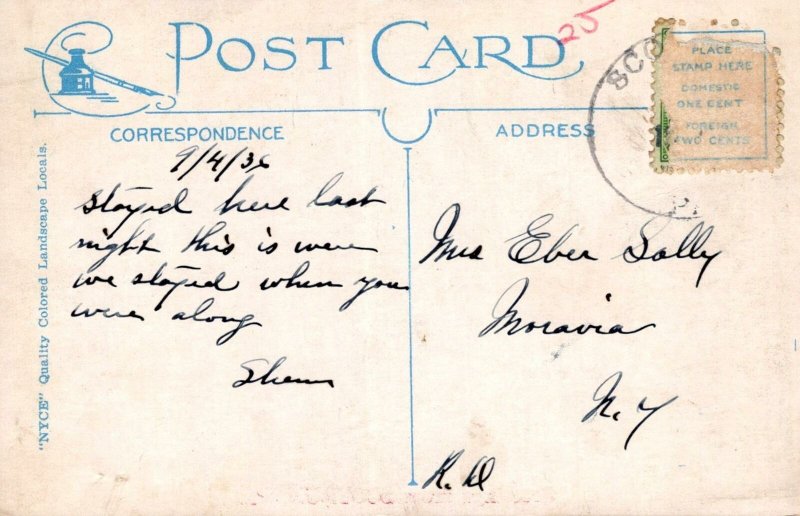 POST CARD
25
SCO
PA
PLACE
STAMP HERE
DOMESTIC
ONE CENT
FOREIGN
TWO CENTS
CORRESPONDENCE
ADDRESS
"NYCE" Quality Colored Landscape Locals.
9/4/36
stayed here last
night this is were
we stayed when you
were along
Mrs Eber Sally
Moravia
N.Y
R.D